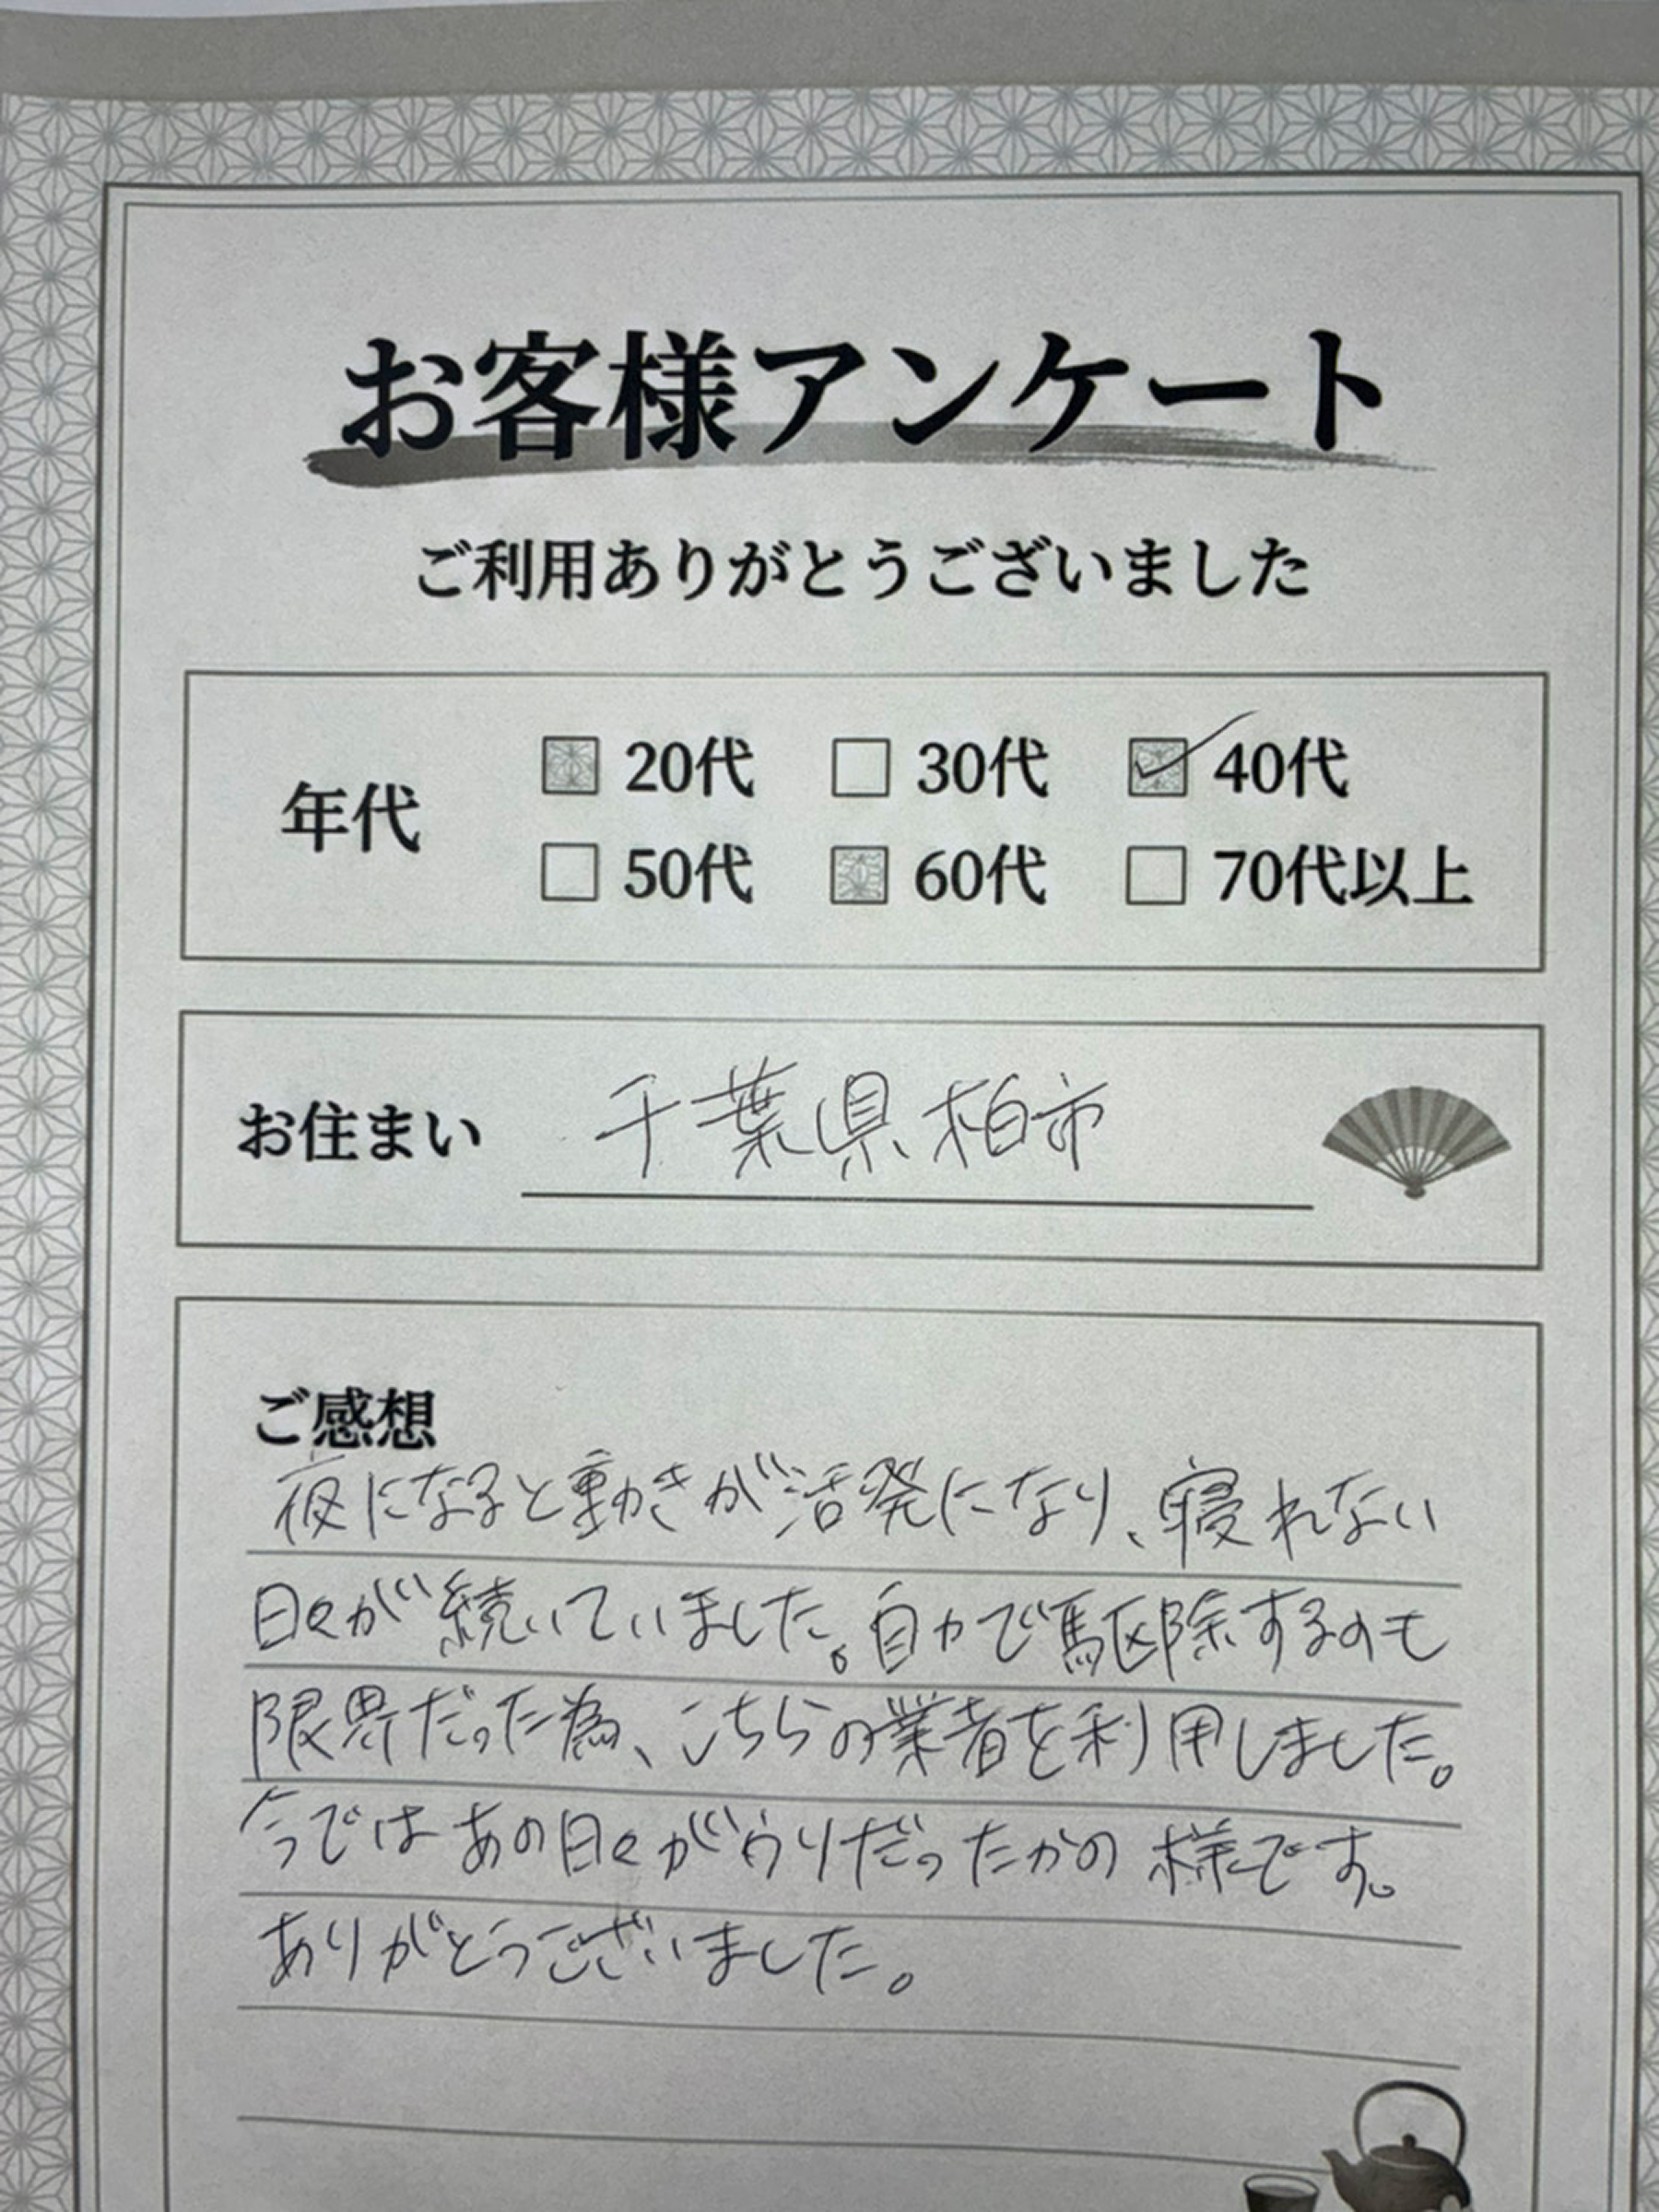 お客様アンケート
ご利用ありがとうございました
年代
20代 30代 40代
50代 60代 70代以上
お住まい 千葉県柏市
ご感想
夜になると動きが活発になり、寝れない
日々が続いていました。自力で駆除するのも
限界だった為、こちらの業者を利用しました。
今ではあの日々がウソだったかの様です。
ありがとうございました。